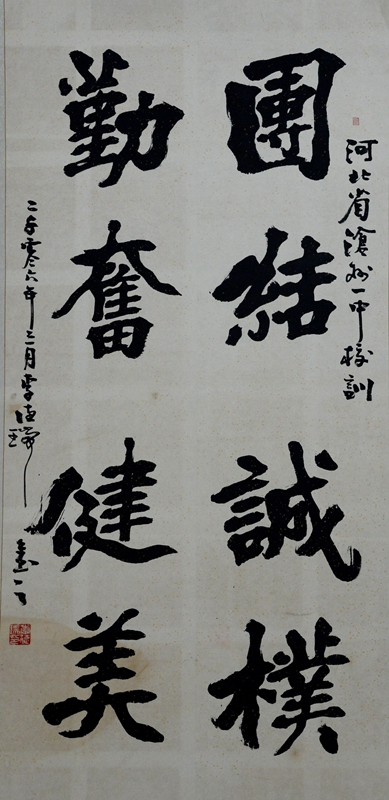 河北省滄州一中校訓
團結誠樸
勤奮健美
二〇零六年三月李